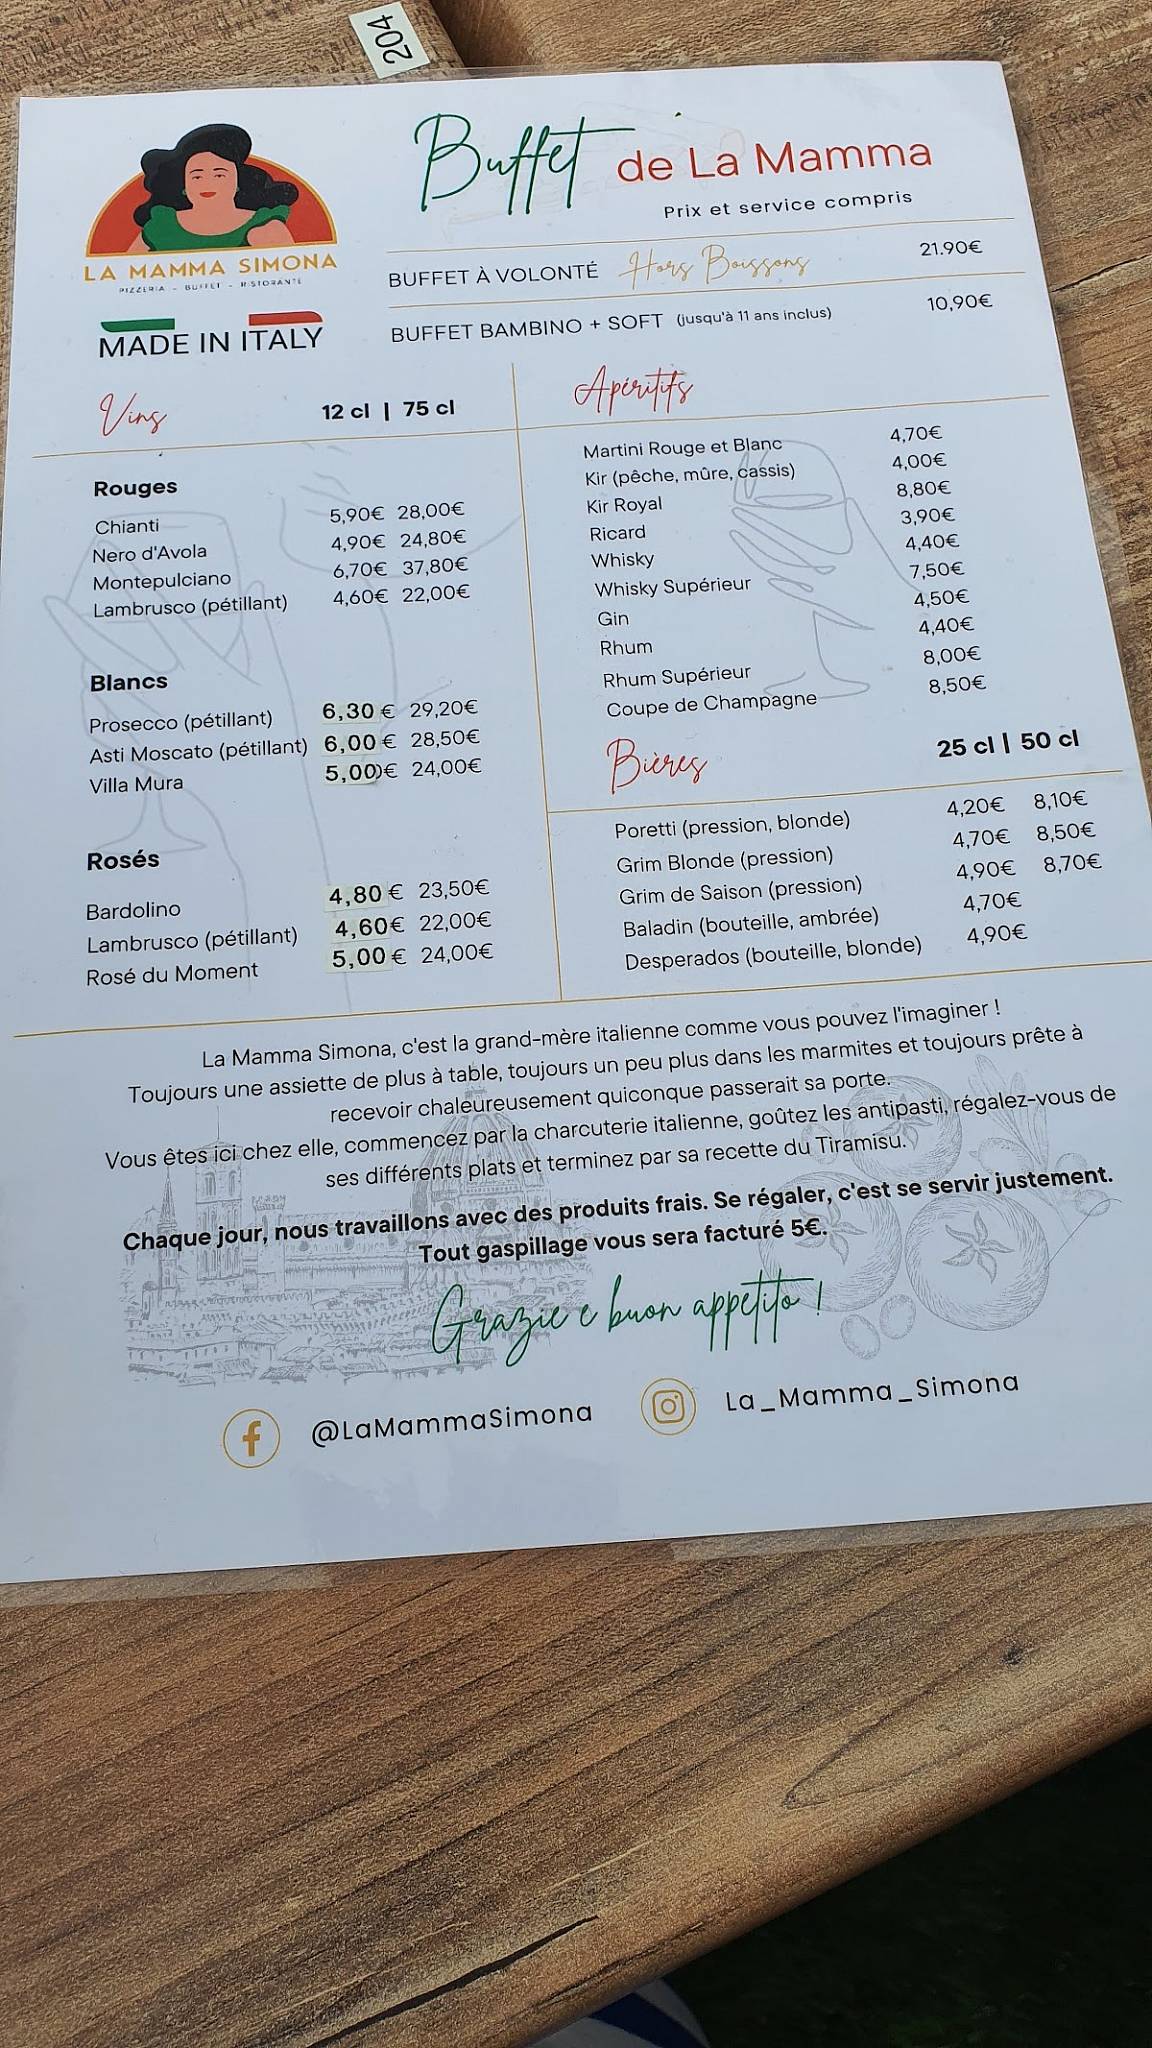 204
Buffet de La Mamma
Prix et service compris
LA MAMMA SIMONA
PIZZERIA - BUFFET - RISTORANTE
MADE IN ITALY
BUFFET À VOLONTÉ Hors Boissons 21.90€
BUFFET BAMBINO + SOFT (jusqu'à 11 ans inclus) 10,90€
Vins 12 cl | 75 cl
Rouges
Chianti 5,90€ 28,00€
Nero d'Avola 4,90€ 24,80€
Montepulciano 6,70€ 37,80€
Lambrusco (pétillant) 4,60€ 22,00€
Blancs
Prosecco (pétillant) 6,30 € 29,20€
Asti Moscato (pétillant) 6,00 € 28,50€
Villa Mura 5,00€ 24,00€
Rosés
Bardolino 4,80 € 23,50€
Lambrusco (pétillant) 4,60€ 22,00€
Rosé du Moment 5,00 € 24,00€
Apéritifs
Martini Rouge et Blanc 4,70€
Kir (pêche, mûre, cassis) 4,00€
Kir Royal 8,80€
Ricard 3,90€
Whisky 4,40€
Whisky Supérieur 7,50€
Gin 4,50€
Rhum 4,40€
Rhum Supérieur 8,00€
Coupe de Champagne 8,50€
Bières 25 cl | 50 cl
Poretti (pression, blonde) 4,20€ 8,10€
Grim Blonde (pression) 4,70€ 8,50€
Grim de Saison (pression) 4,90€ 8,70€
Baladin (bouteille, ambrée) 4,70€
Desperados (bouteille, blonde) 4,90€
La Mamma Simona, c'est la grand-mère italienne comme vous pouvez l'imaginer !
Toujours une assiette de plus à table, toujours un peu plus dans les marmites et toujours prête à
recevoir chaleureusement quiconque passerait sa porte.
Vous êtes ici chez elle, commencez par la charcuterie italienne, goûtez les antipasti, régalez-vous de
ses différents plats et terminez par sa recette du Tiramisu.
Chaque jour, nous travaillons avec des produits frais. Se régaler, c'est se servir justement.
Tout gaspillage vous sera facturé 5€.
Grazie e buon appetito !
@LaMammaSimona
La_Mamma_Simona